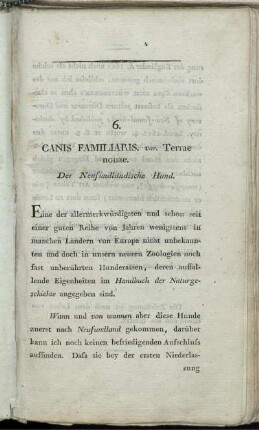 6.
CANIS FAMILIARIS. var. Terrae
novae.
Der Neufundländische Hund.
Eine der allermerkwürdigsten und schon seit
einer guten Reihe von Jahren wenigstens in
manchen Ländern von Europa nicht unbekann-
ten und doch in unsern neuen Zoologien noch
fast unberührten Hunderassen, deren auffal-
lende Eigenheiten im Handbuch der Naturge-
schichte angegeben sind.
Wann und von wannen aber diese Hunde
zuerst nach Neufundland gekommen, darüber
kann ich noch keinen befriedigenden Aufschluss
auffinden. Dass sie bey der ersten Niederlas-
sung